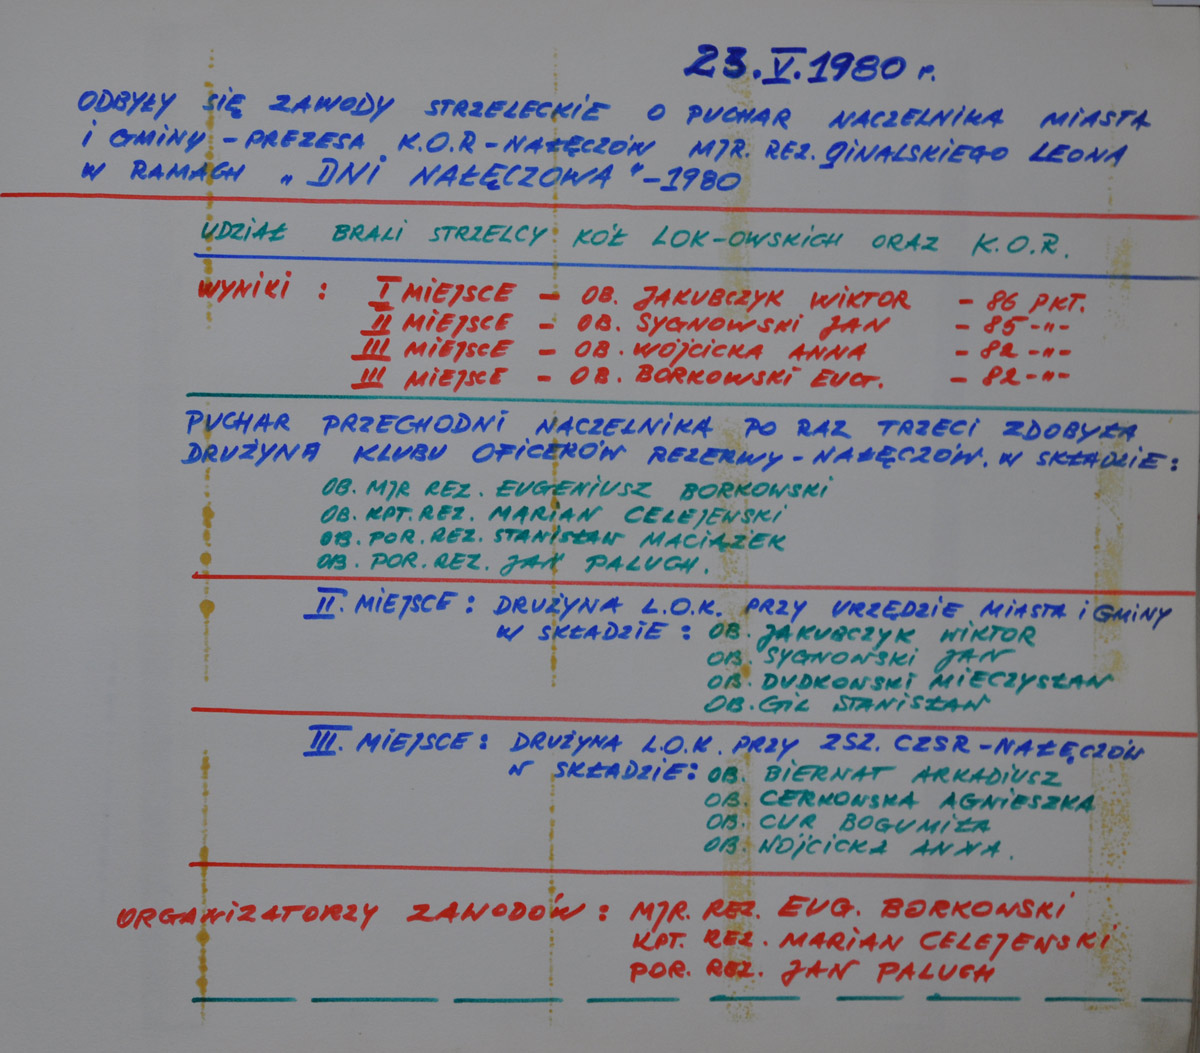 23.V.1980 r.
ODBYŁY SIĘ ZAWODY STRZELECKIE O PUCHAR NACZELNIKA MIASTA
I GMINY - PREZESA K.O.R - NAŁĘCZÓW MJR. REZ. GINALSKIEGO LEONA
W RAMACH „DNI NAŁĘCZOWA" - 1980
UDZIAŁ BRALI STRZELCY KÓŁ LOK-OWSKICH ORAZ K.O.R.
WYNIKI : I MIEJSCE - OB. JAKUBCZYK WIKTOR - 86 PKT.
II MIEJSCE - OB. SYGNOWSKI JAN - 85 -"-
III MIEJSCE - OB. WÓJCICKA ANNA - 82 -"-
III MIEJSCE - OB. BORKOWSKI EUG. - 82 -"-
PUCHAR PRZECHODNI NACZELNIKA PO RAZ TRZECI ZDOBYŁA
DRUŻYNA KLUBU OFICERÓW REZERWY - NAŁĘCZÓW. W SKŁADZIE :
OB. MJR REZ. EUGENIUSZ BORKOWSKI
OB. KPT. REZ. MARIAN CELEJEWSKI
OB. POR. REZ. STANISŁAW MACIĄŻEK
OB. POR. REZ. JAN PALUCH.
II. MIEJSCE : DRUŻYNA L.O.K. PRZY URZĘDZIE MIASTA i GMINY
W SKŁADZIE : OB. JAKUBCZYK WIKTOR
OB. SYGNOWSKI JAN
OB. DUDKOWSKI MIECZYSŁAW
OB. GIL STANISŁAW
III. MIEJSCE : DRUŻYNA L.O.K. PRZY ZSZ. CZSR - NAŁĘCZÓW
W SKŁADZIE : OB. BIERNAT ARKADIUSZ
OB. CERKOWSKA AGNIESZKA
OB. CUR BOGUMIŁA
OB. WÓJCICKA ANNA.
ORGANIZATORZY ZAWODÓW : MJR. REZ. EUG. BORKOWSKI
KPT. REZ. MARIAN CELEJEWSKI
POR. REZ. JAN PALUCH